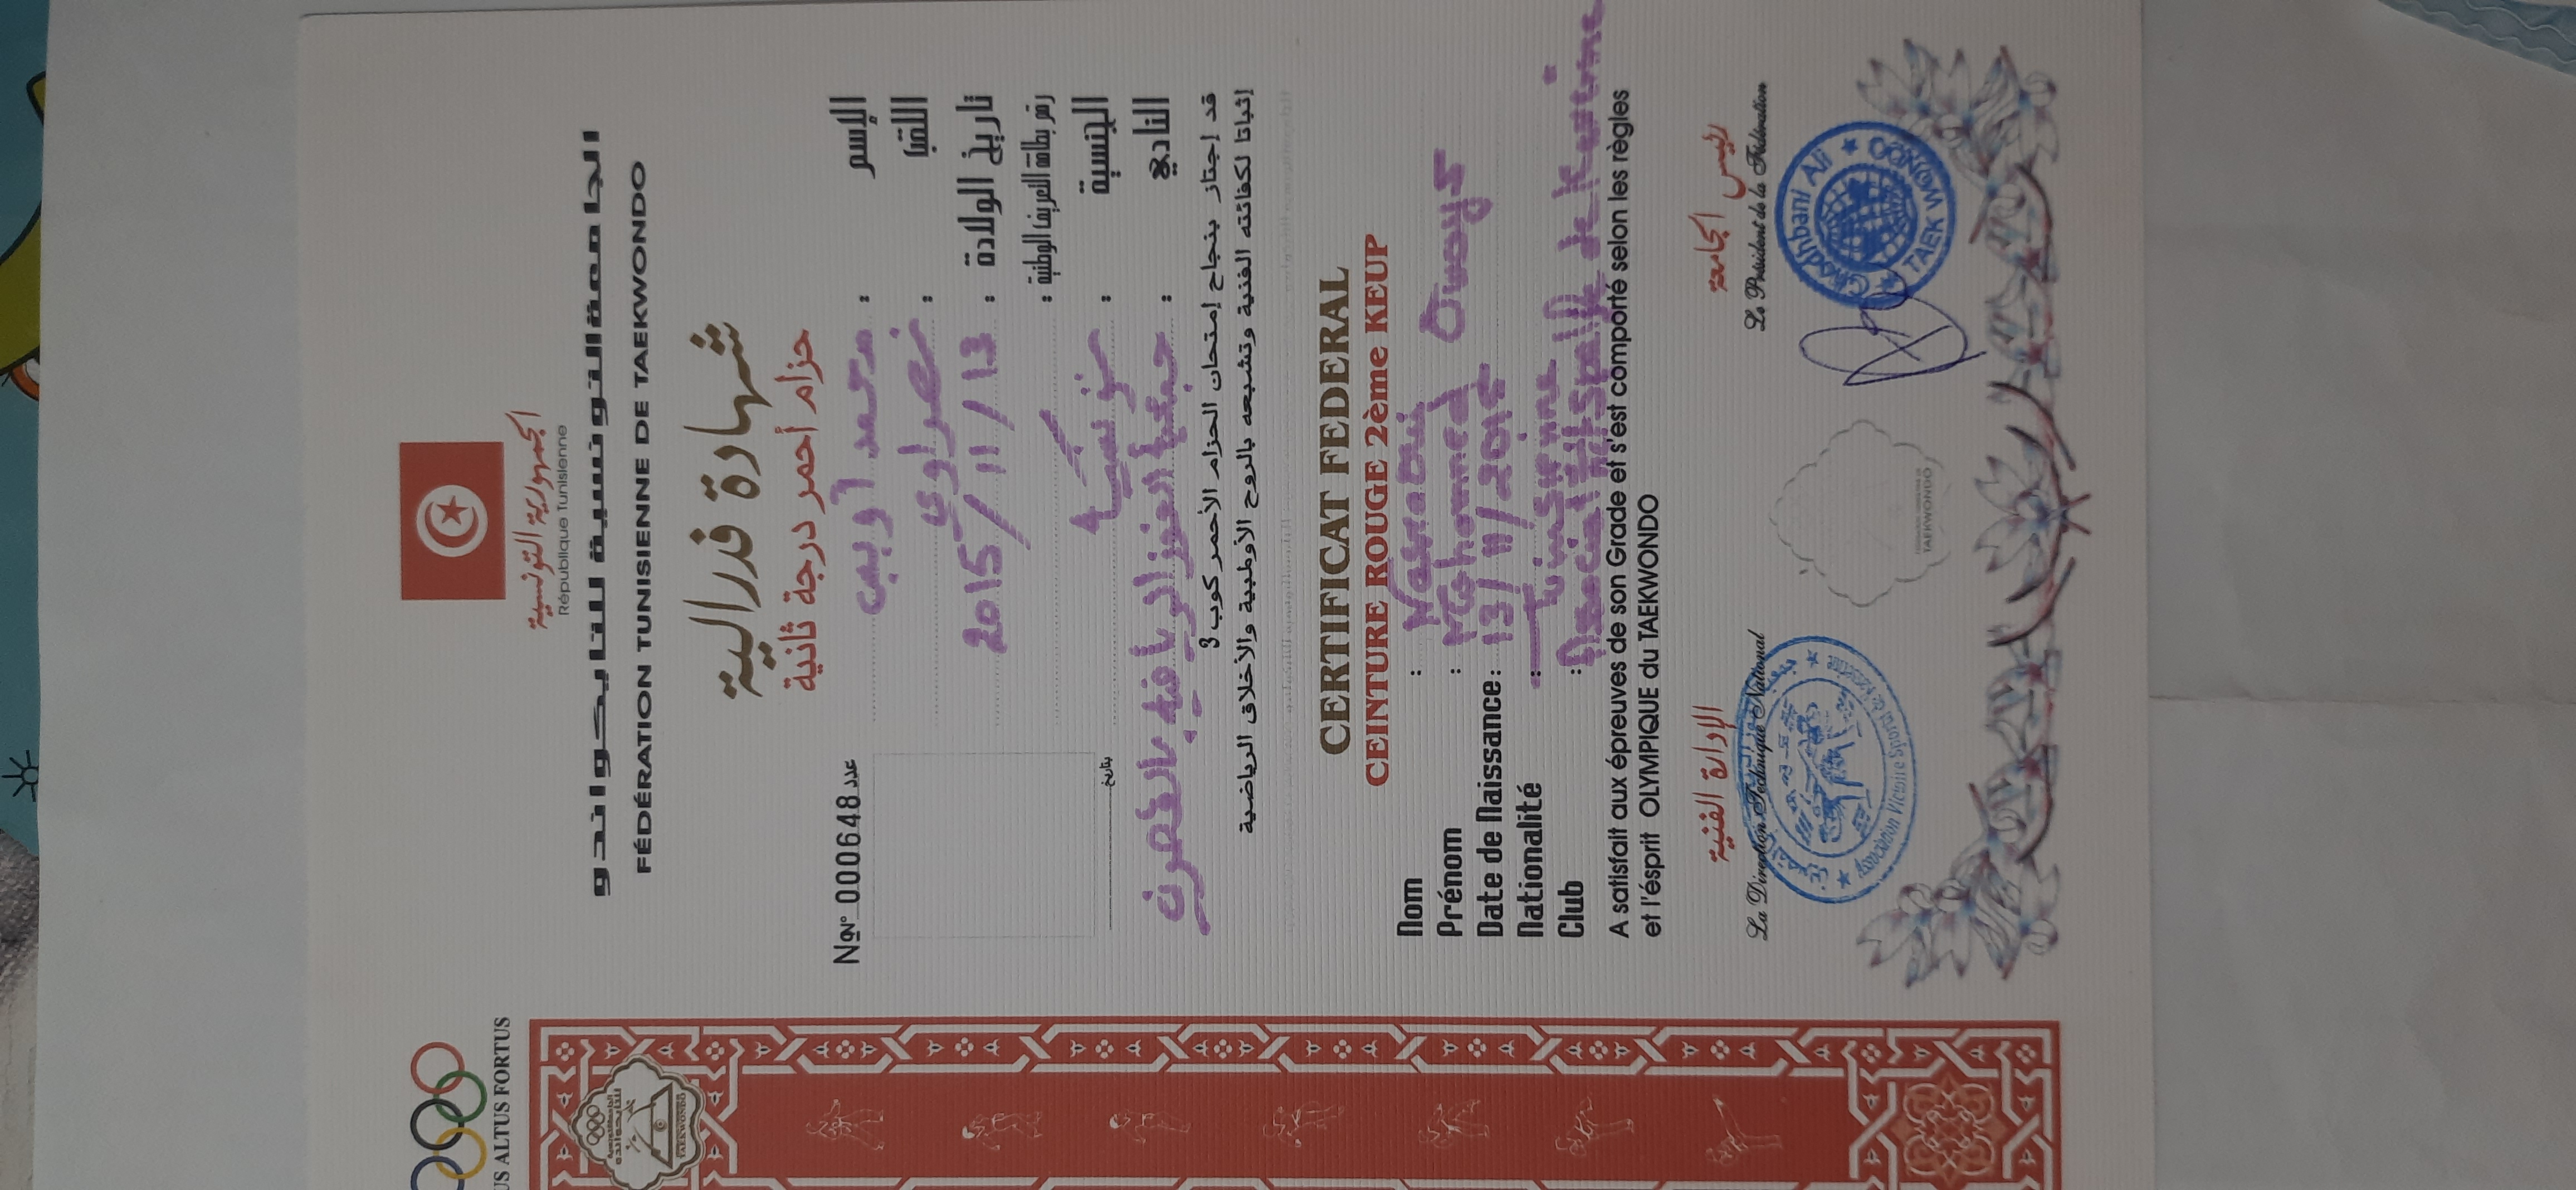 US ALTUS FORTUS
الجمهورية التونسية
République Tunisienne
الجامعة التونسية للتايكواندو
FÉDÉRATION TUNISIENNE DE TAEKWONDO
شهادة فدرالية
حزام أحمر درجة ثانية
N° 000648 عدد
الإسم : محمد أويس
اللقب : نصراوي
تاريخ الولادة : 2015/11/13
رقم بطاقة التعريف الوطنية :
الجنسية : تونسية
بتاريخ
النادي : جمعية الفوز الرياضية
قد إجتاز بنجاح إمتحان الحزام الأحمر كوب 3
إثباتا لكفائته الفنية وتشبعه بالروح الأولمبية والأخلاق الرياضية
CERTIFICAT FEDERAL
CEINTURE ROUGE 2ème KEUP
Nom : Nasraoui
Prénom : Mohamed Oways
Date de Naissance : 13/11/2015
Nationalité : Tunisienne
Club : Association de
A satisfait aux épreuves de son Grade et s'est comporté selon les règles
et l'ésprit OLYMPIQUE du TAEKWONDO
الإدارة الفنية
La Direction Technique National
رئيس الجامعة
Le Président de la Fédération
Association Victoire Sport de
TAEKWONDO
Ghodhbani Ali
TAEKWONDO
TAEKWONDO